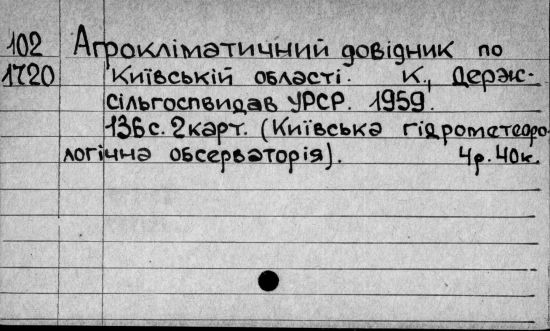 102 Агрокліматичний довідник по
1720 Київській області. К., Держ-
сільгоспвидав УРСР. 1959.
136 с. 2 карт. (Київська гідрометеоро-
логічна обсерваторія). 4р. 40к.